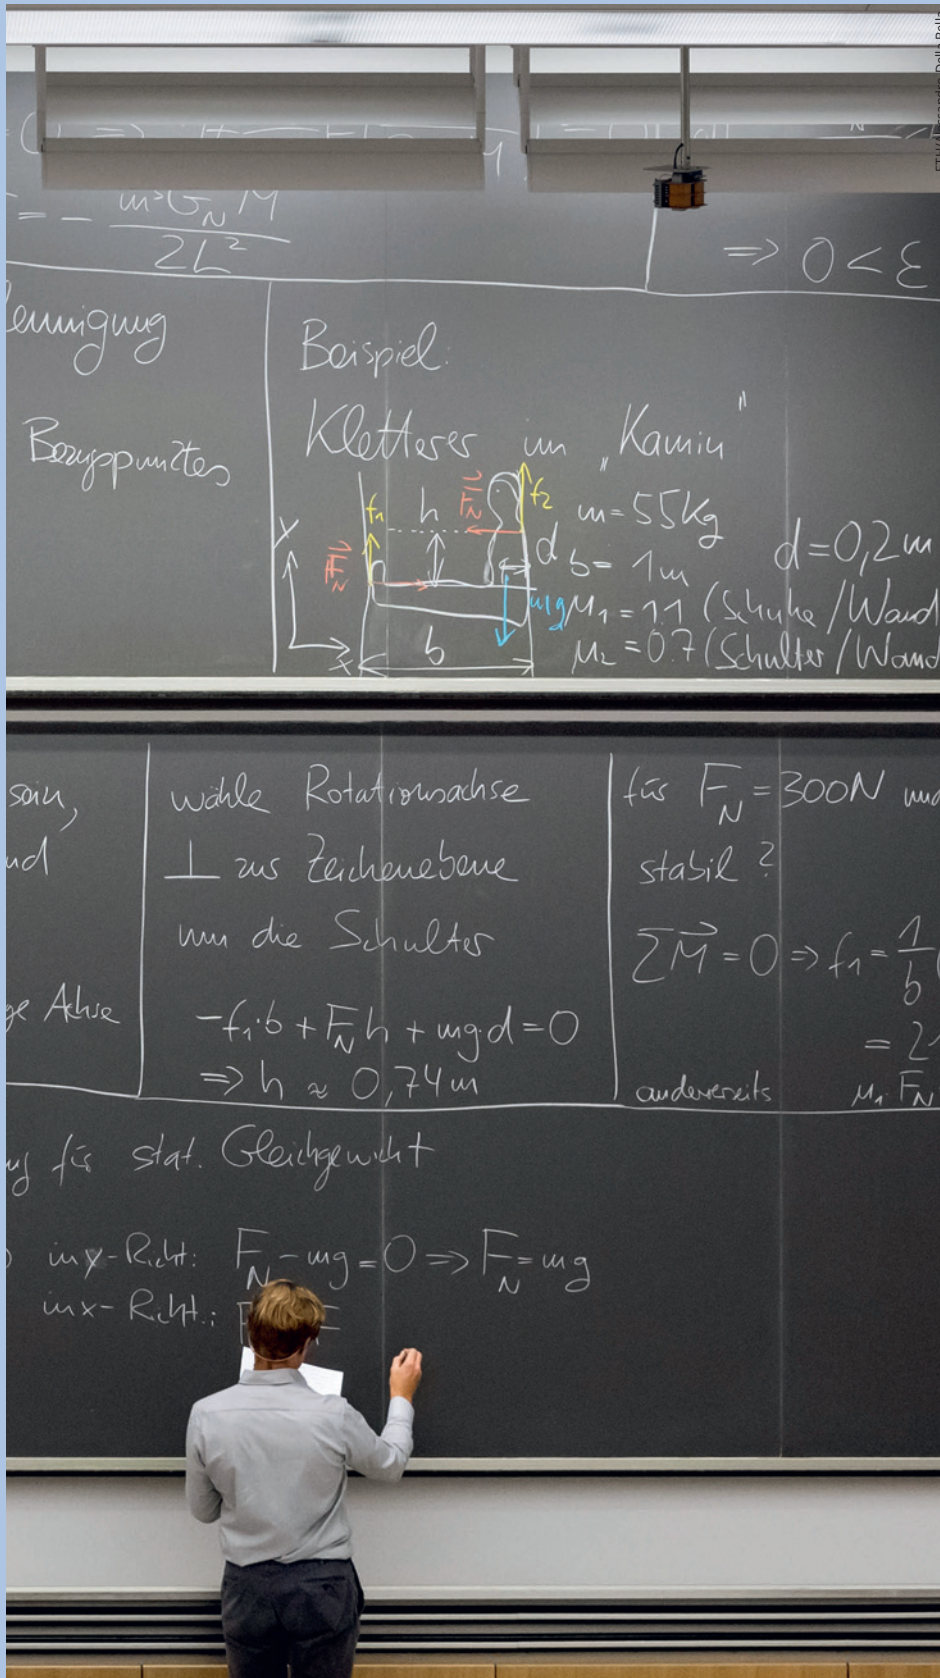 = - m³G_N M / 2L²
=> 0 < ε
Bezugspunktes
Beispiel:
Kletterer im „Kamin"
f₁
h
F_N
f₂
m = 55Kg
y
F_N
d
b = 1m
d = 0,2m
mg
μ₁ = 1.1 (Schuhe / Wand
x
b
μ₂ = 0.7 (Schulter / Wand
sein,
wähle Rotationsachse
⊥ zur Zeichenebene
um die Schulter
-f₁·b + F_N h + mg·d = 0
=> h ≈ 0,74m
ge Achse
für F_N = 300N und
stabil?
∑M = 0 => f₁ = 1/b
= 2
andererseits μ₁·F_N
für stat. Gleichgewicht
in y-Richt.: F_N - mg = 0 => F_N = mg
in x-Richt.: